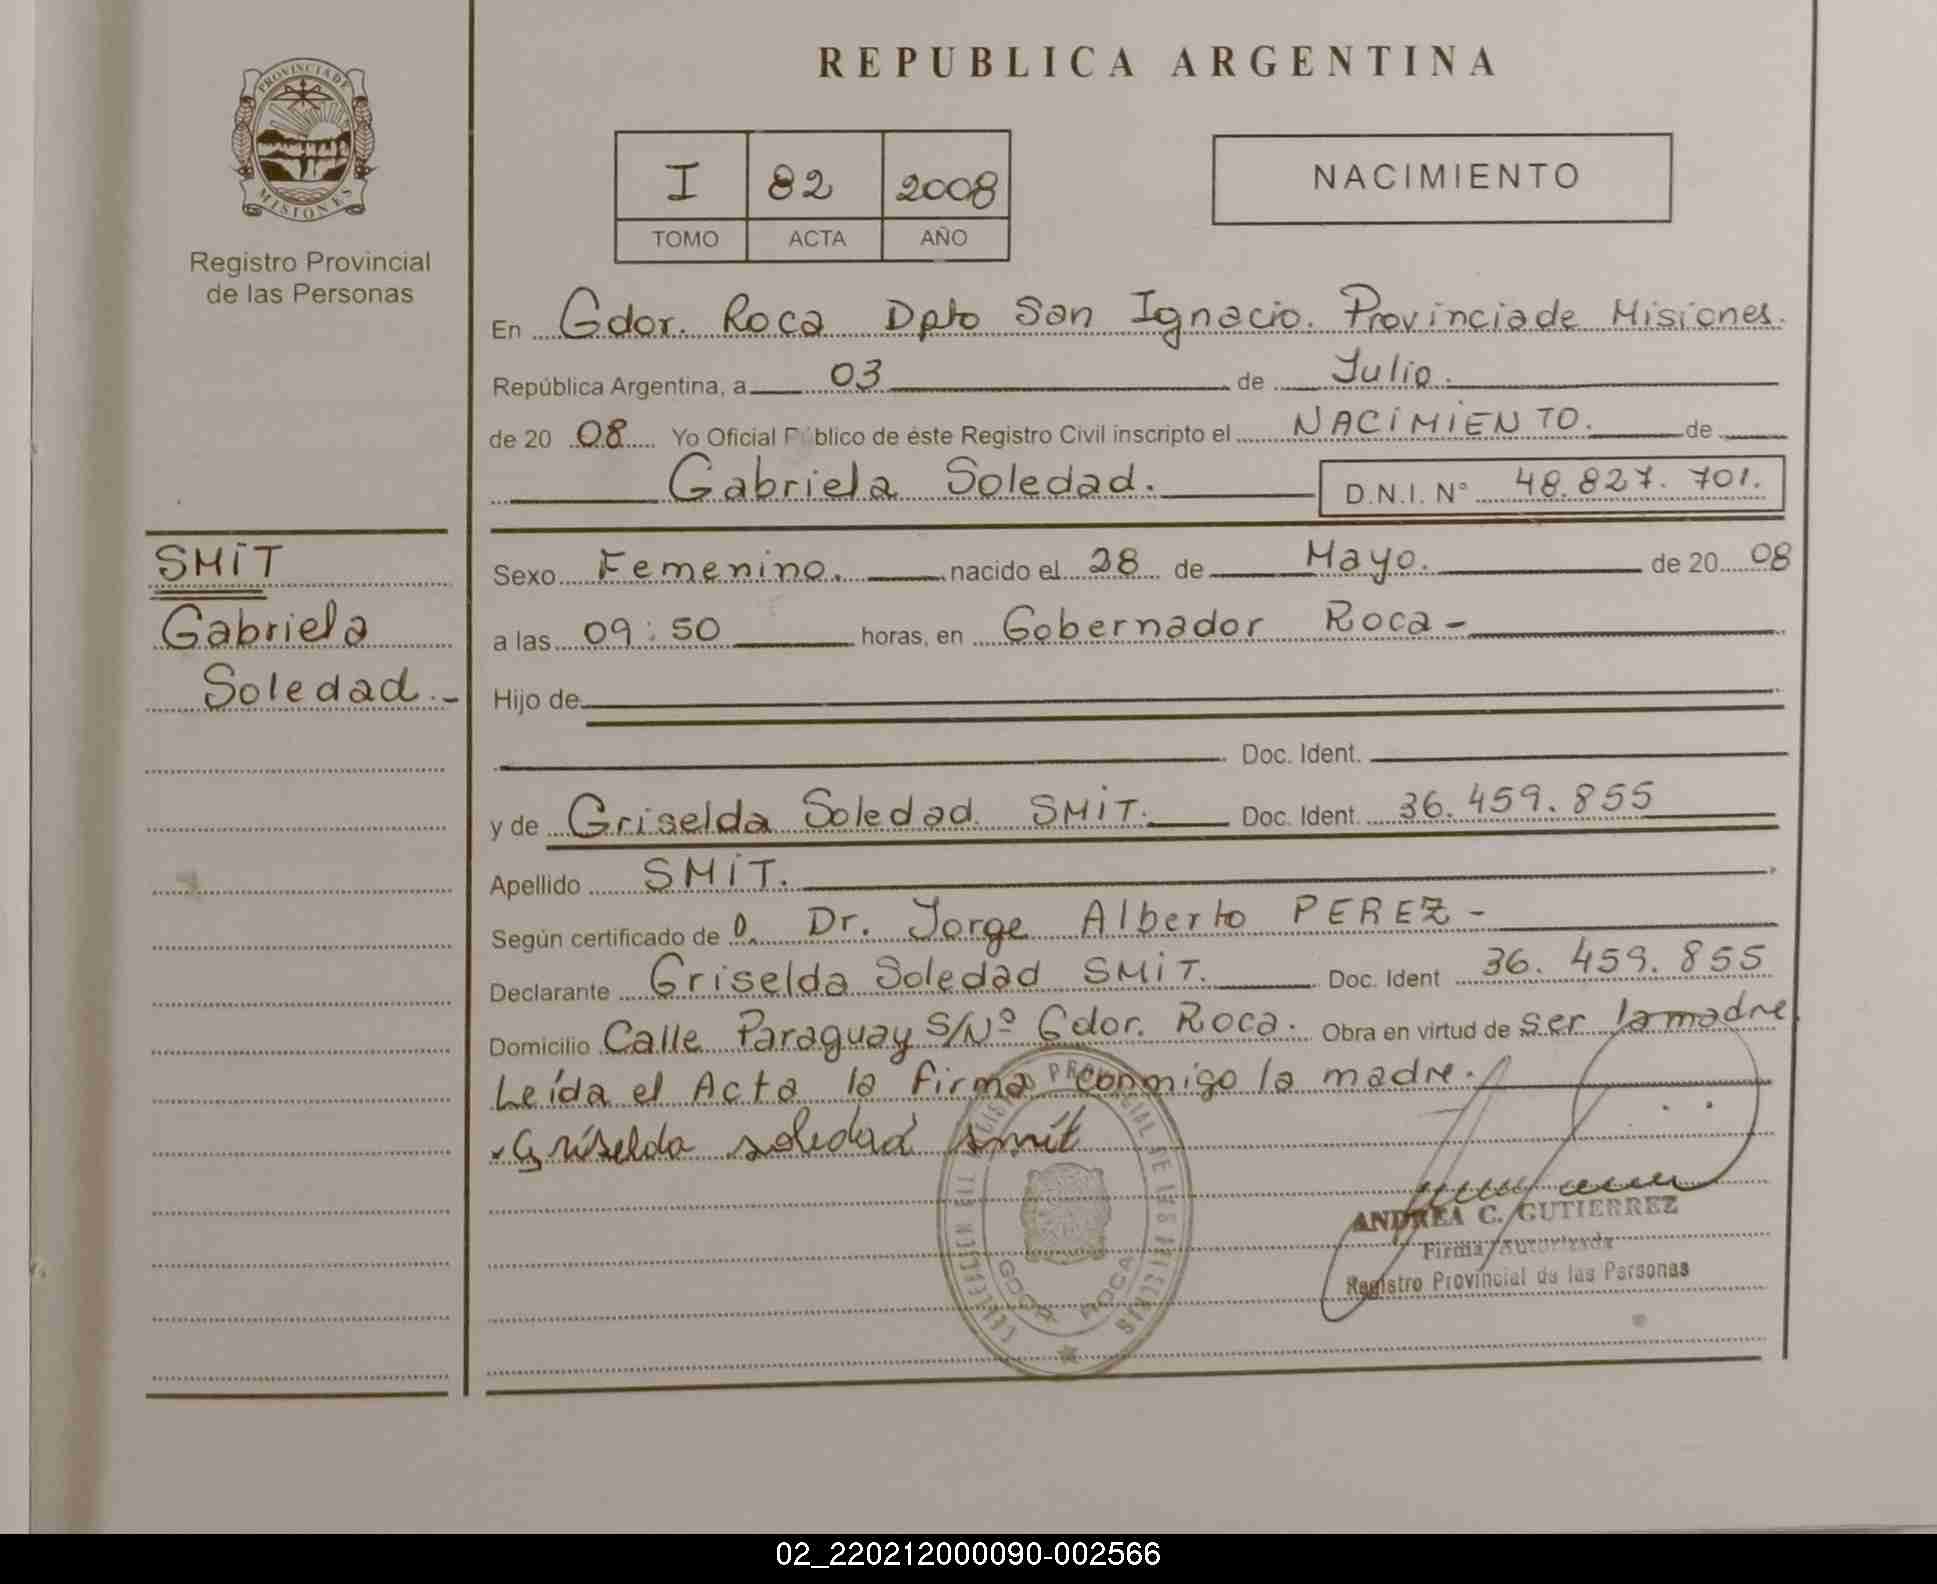 REPUBLICA ARGENTINA
PROVINCIA DE
MISIONES
Registro Provincial
de las Personas
I 82 2008
TOMO ACTA AÑO
NACIMIENTO
En Gdor. Roca Dpto San Ignacio. Provincia de Misiones.
República Argentina, a 03 de Julio.
de 20 08 Yo Oficial Público de éste Registro Civil inscripto el NACIMIENTO. de
Gabriela Soledad. D.N.I. N° 48.827.701.
SMiT
Gabriela
Soledad.-
Sexo Femenino. nacido el 28 de Mayo. de 20 08
a las 09:50 horas, en Gobernador Roca -
Hijo de
Doc. Ident.
y de Griselda Soledad SMiT. Doc. Ident. 36.459.855
Apellido SMiT.
Según certificado de D. Dr. Jorge Alberto PEREZ -
Declarante Griselda Soledad SMiT. Doc. Ident 36.459.855
Domicilio Calle Paraguay S/Nº Gdor. Roca. Obra en virtud de ser la madre.
Leída el Acta la firma conmigo la madre.
Griselda soledad smit
PROVINCIAL DE LAS PERSONAS
GDOR ROCA
ANDREA C. GUTIERREZ
Firma Autorizada
Registro Provincial de las Personas
02_220212000090-002566